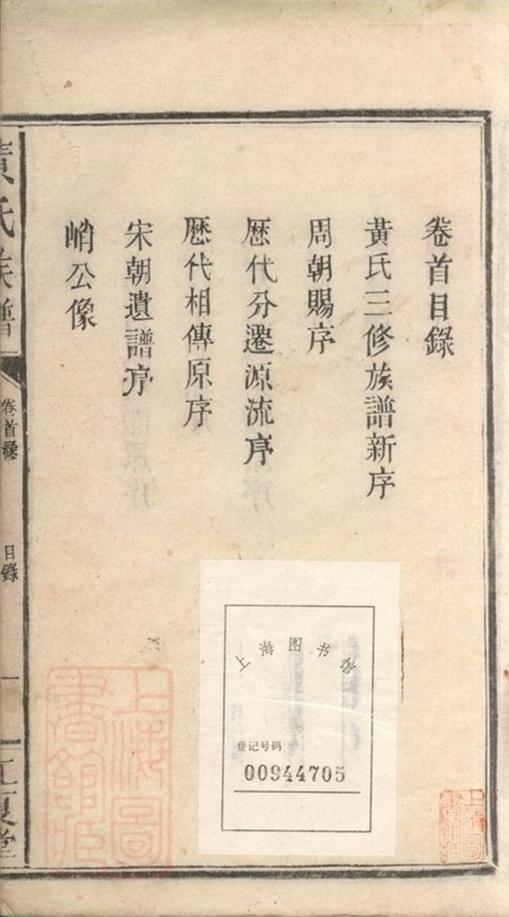 卷首目錄
黃氏三修族譜新序
周朝賜序
歷代分遷源流序
歷代相傳原序
宋朝遺譜序
峭公像
黃氏族譜
卷首
目錄
一
江夏堂
上海图书馆
登记号码
00944705
上海圖
書館藏